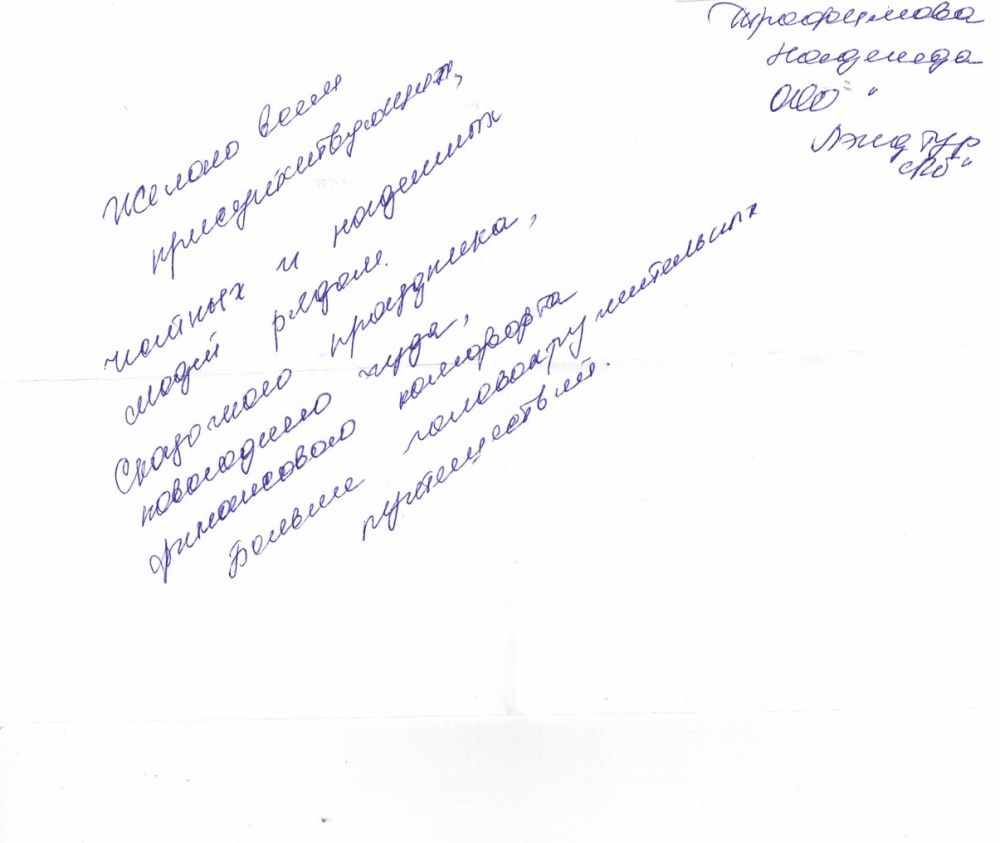 Трофимова
Надежда
ООО "
Лэнд Тур
СПб"
Желаю всем
присутствующим,
честных и надежных
людей рядом.
Сказочного праздника,
новогоднего чуда,
финансового комфорта
Больше головокружительных
путешествий.